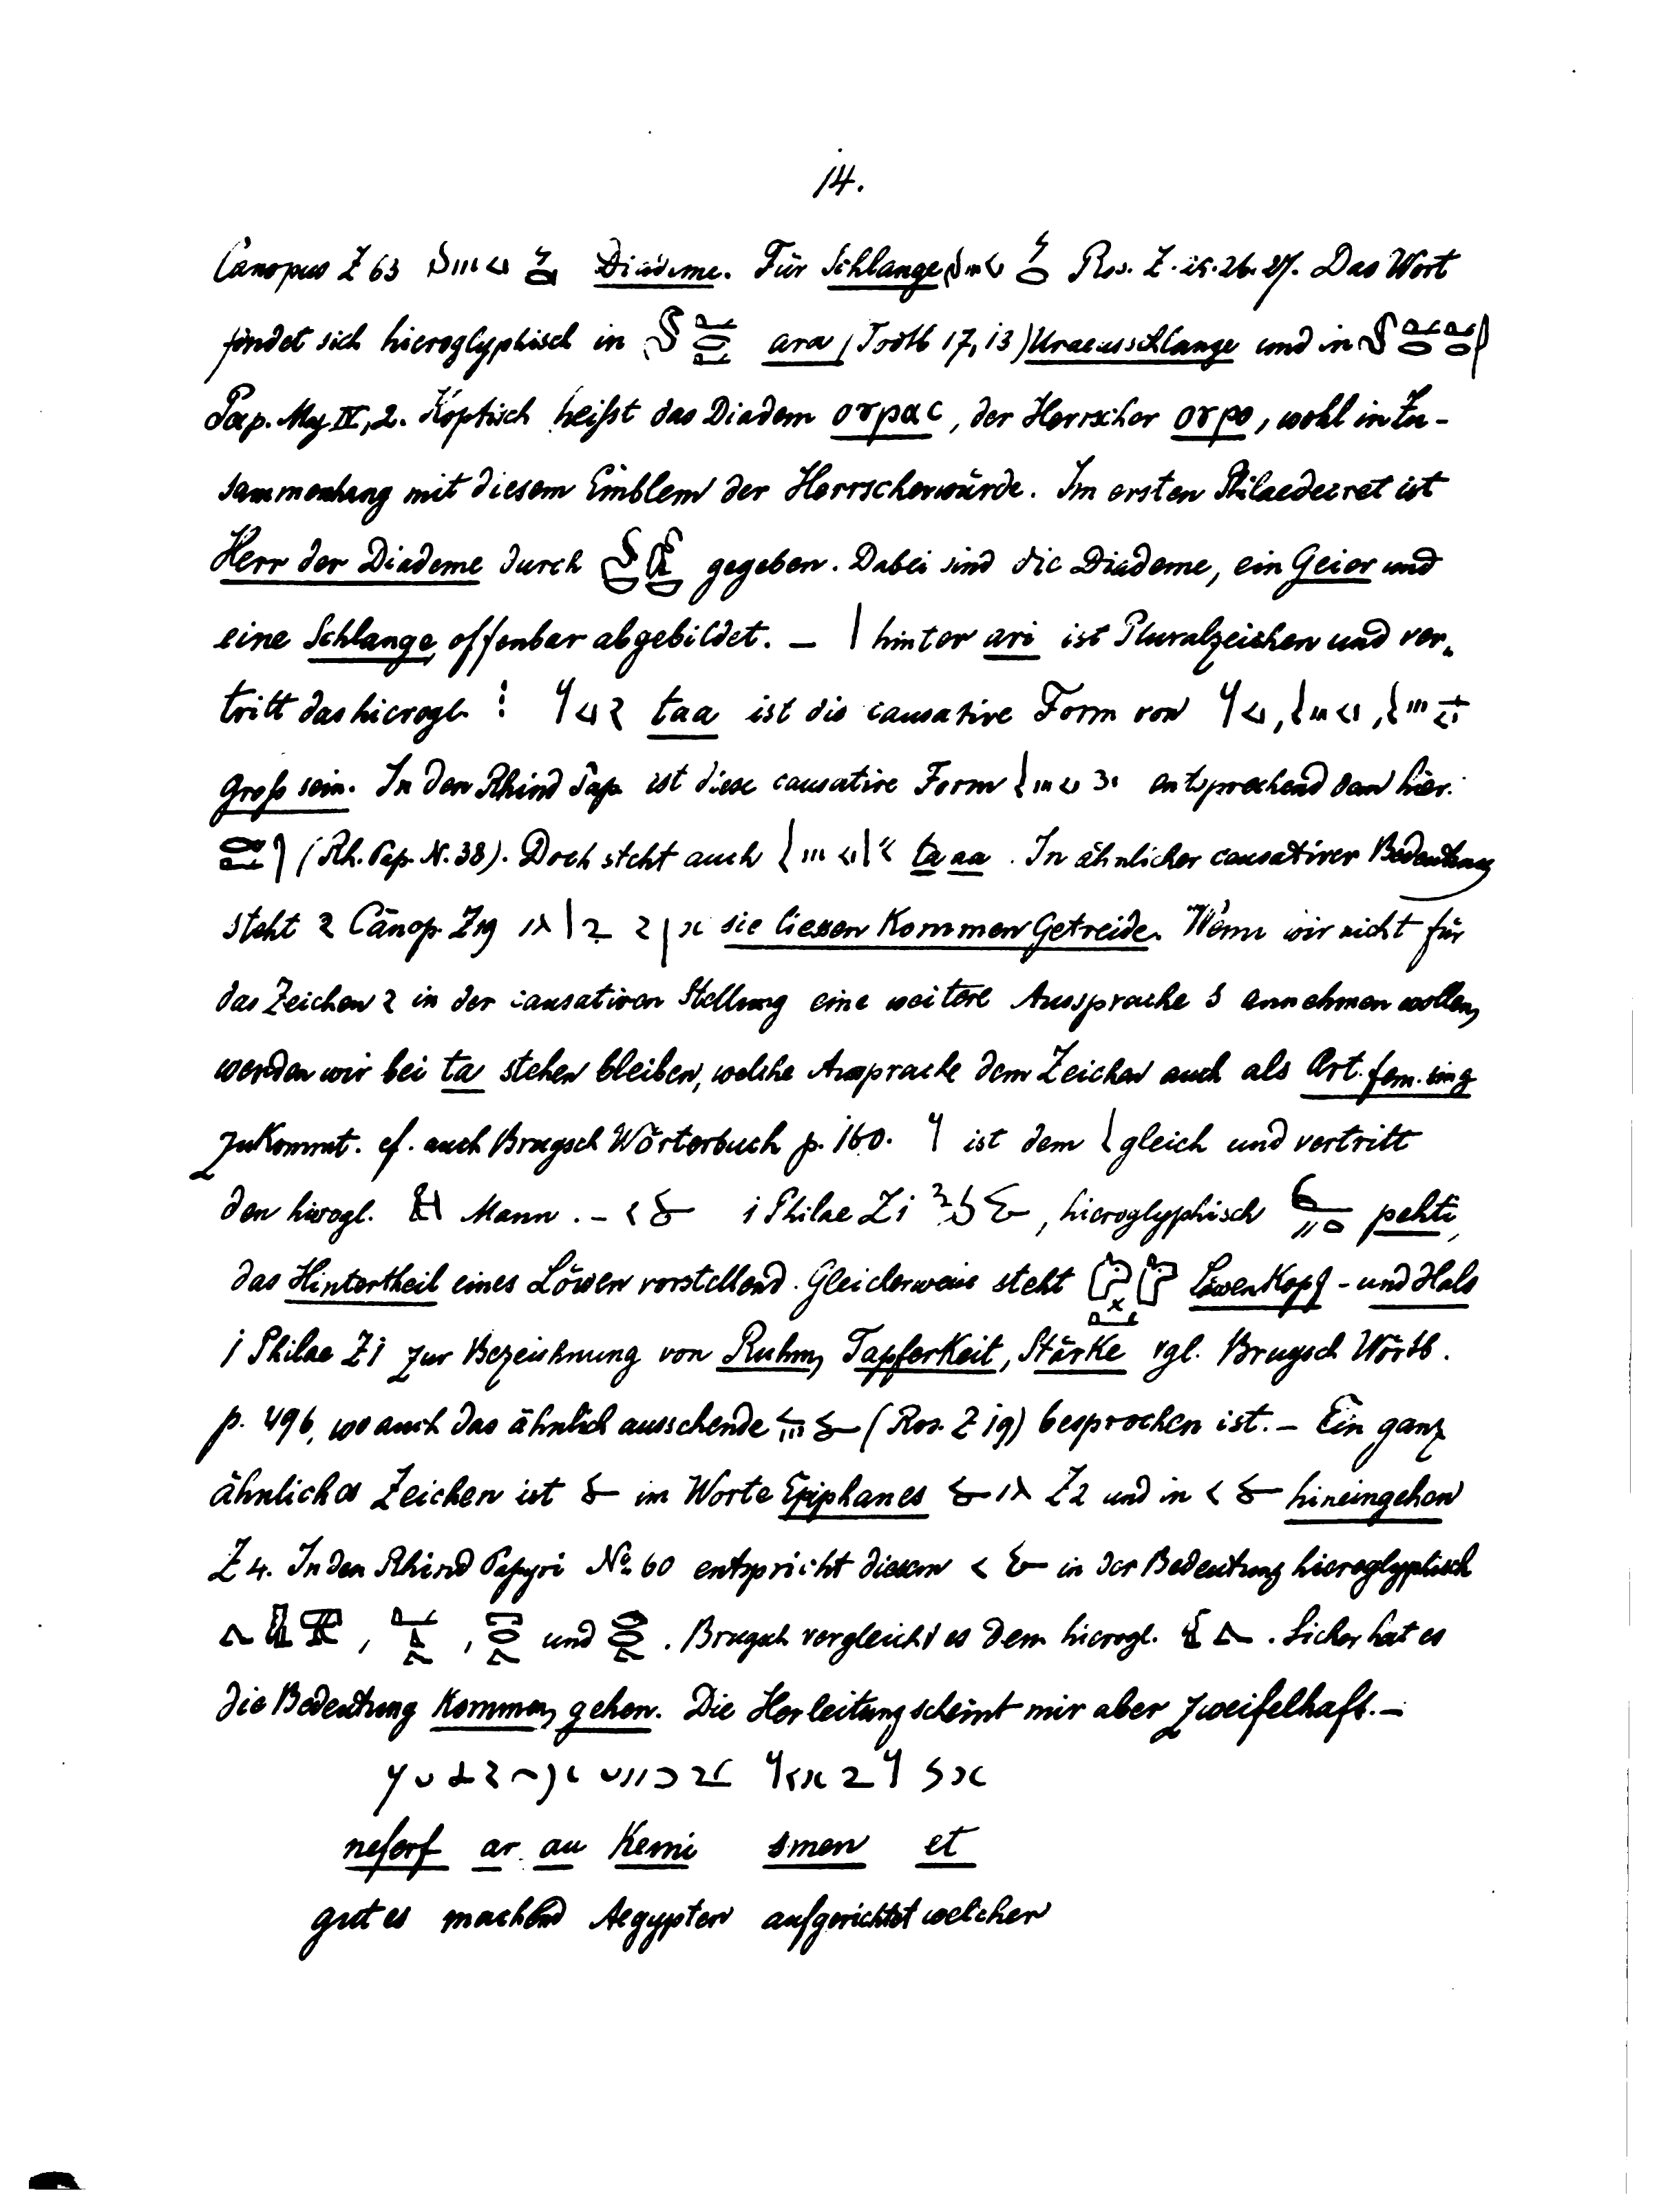 14.
Canopus Z 63 Diademe. Für Schlange Ros. Z. 26. 27. Das Wort
findet sich hieroglyphisch in ara (Todtb 17,13) Uraeusschlange und in
Pap. Mag IV, 2. Koptisch heißt das Diadem ⲟⲩⲣⲁⲥ, der Herrscher ⲟⲩⲣⲟ, wohl in Zu-
sammenhang mit diesem Emblem der Herrscherwürde. Im ersten Philaedecret ist
Herr der Diademe durch gegeben. Dabei sind die Diademe, ein Geier und
eine Schlange offenbar abgebildet. — hinter ari ist Pluralzeichen und ver-
tritt das hierogl. taa ist die causative Form von
groß sein. In den Rhind Pap. ist diese causative Form entsprechend dem hier.
(Rh. Pap. N. 38). Doch steht auch ta aa. In ähnlicher causativer Bedeutung
steht Canop. Z 19 sie liessen kommen Getreide. Wenn wir nicht für
das Zeichen in der causativen Stellung eine weitere Aussprache s annehmen wollen,
werden wir bei ta stehen bleiben, welche Aussprache dem Zeichen auch als Art. fem. sing
zukommt. cf. auch Brugsch Wörterbuch p. 160. ist dem gleich und vertritt
den hierogl. Mann. — 1 Philae Z 1, hieroglyphisch pehti,
das Hintertheil eines Löwen vorstellend. Gleicherweise steht Löwenkopf - und Hals
1 Philae Z 1 zur Bezeichnung von Ruhm, Tapferkeit, Stärke vgl. Brugsch Wörtb.
p. 496, wo auch das ähnlich aussehende (Ros. Z 19) besprochen ist. — Ein ganz
ähnliches Zeichen ist im Worte Epiphanes Z 2 und in hineingehen
Z 4. In den Rhind Papyri No. 60 entspricht diesem in der Bedeutung hieroglyphisch
, , und . Brugsch vergleicht es dem hierogl. . Sicher hat es
die Bedeutung kommen, gehen. Die Herleitung scheint mir aber zweifelhaft. —
neferf ar au Kemi smen et
gut es machend Aegypten aufgerichtet welcher